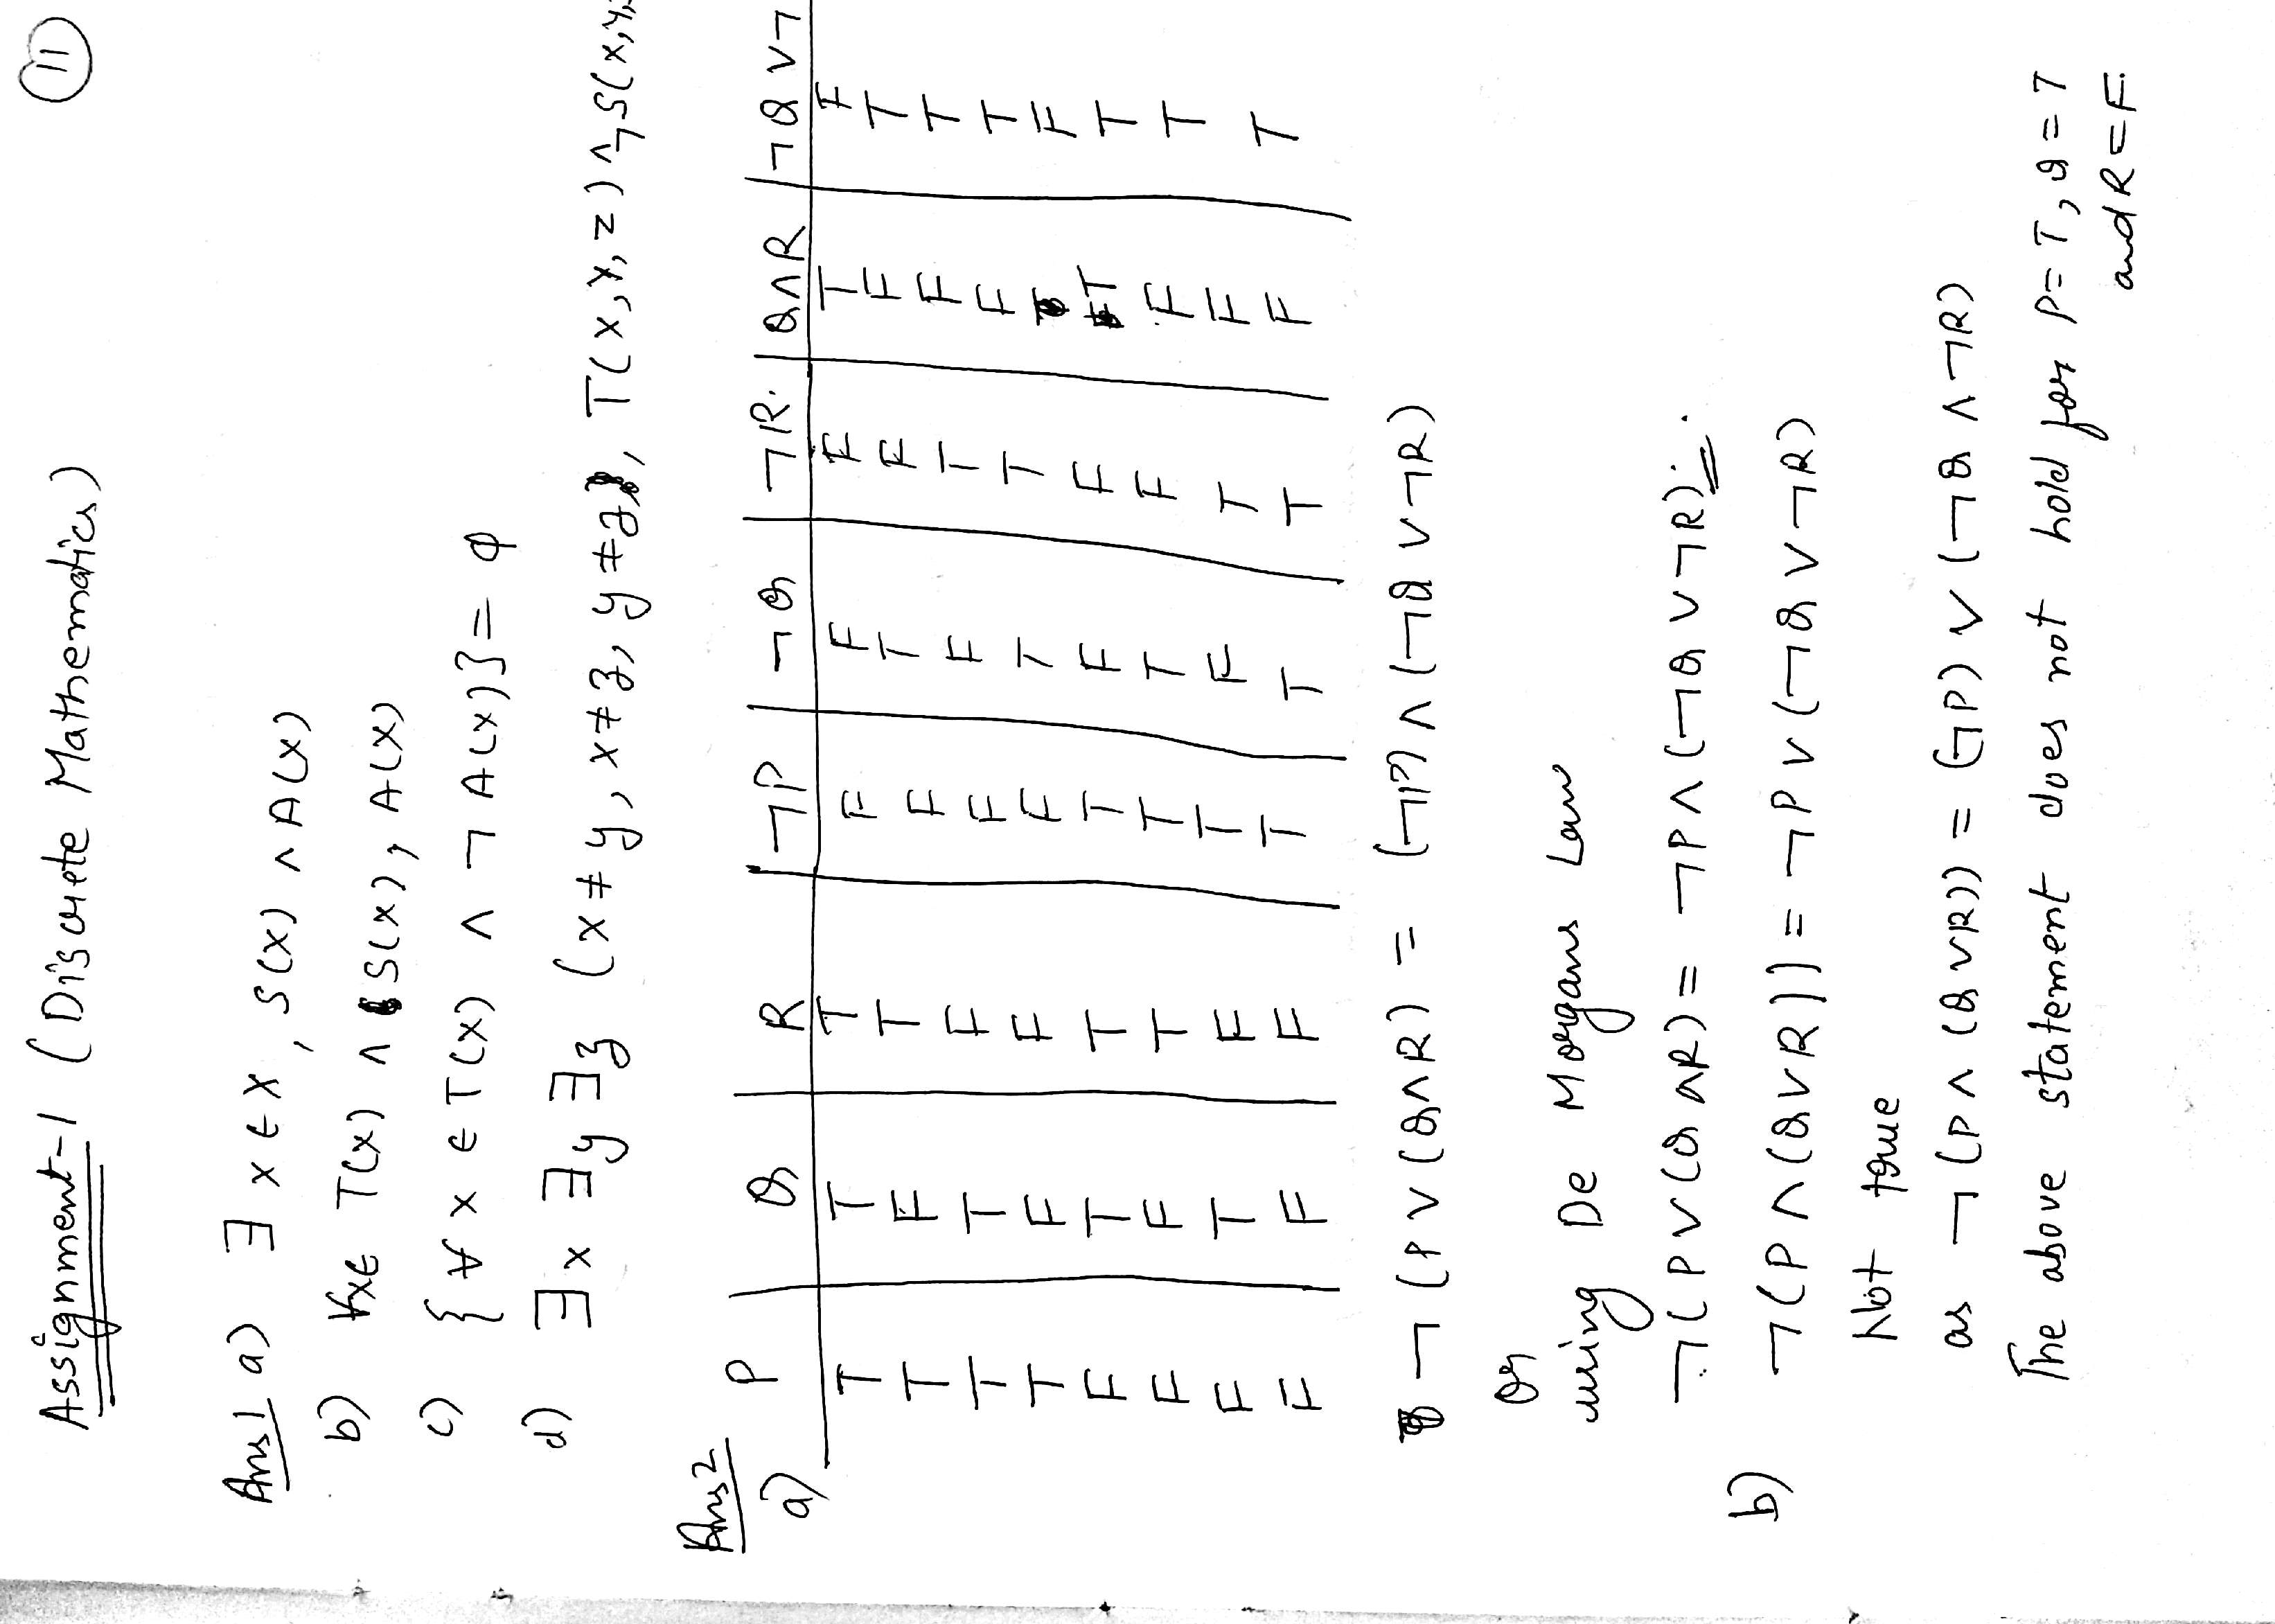 11
Assignment-1 (Discrete Mathematics)
Ans1 a) ∃ x ∈ X, S(x) ∧ A(x)
b) ∀x∈ T(x) ∧ S(x), A(x)
c) {∀ x ∈ T(x) ∧ ¬ A(x)} = φ
d) ∃x ∃y ∃z (x≠y, x≠z, y≠z, T(x,y,z) ∧ ¬S(x,y,
Ans2
a) P Q R ¬P ¬Q ¬R. Q∧R ¬Q ∨¬
T T T F F F T F
T F T F T F F T
T T F F F T F T
T F F F T T F T
F T T T F F F
F F T T T F T T
F T F T F T F T
F F F T T T F T
F
¬(P ∨ (Q∧R) = (¬P) ∧ (¬Q ∨ ¬R)
Or
using De Morgans Law
¬(P ∨ (Q ∧R) = ¬P ∧ (¬Q ∨ ¬R).
b) ¬(P ∧ (Q∨R)) = ¬P ∨ (¬Q ∨ ¬R)
Not true
as ¬(P ∧ (Q ∨R)) = (¬P) ∨ (¬Q ∧ ¬R)
The above statement does not hold for P=T, Q=T
and R=F.